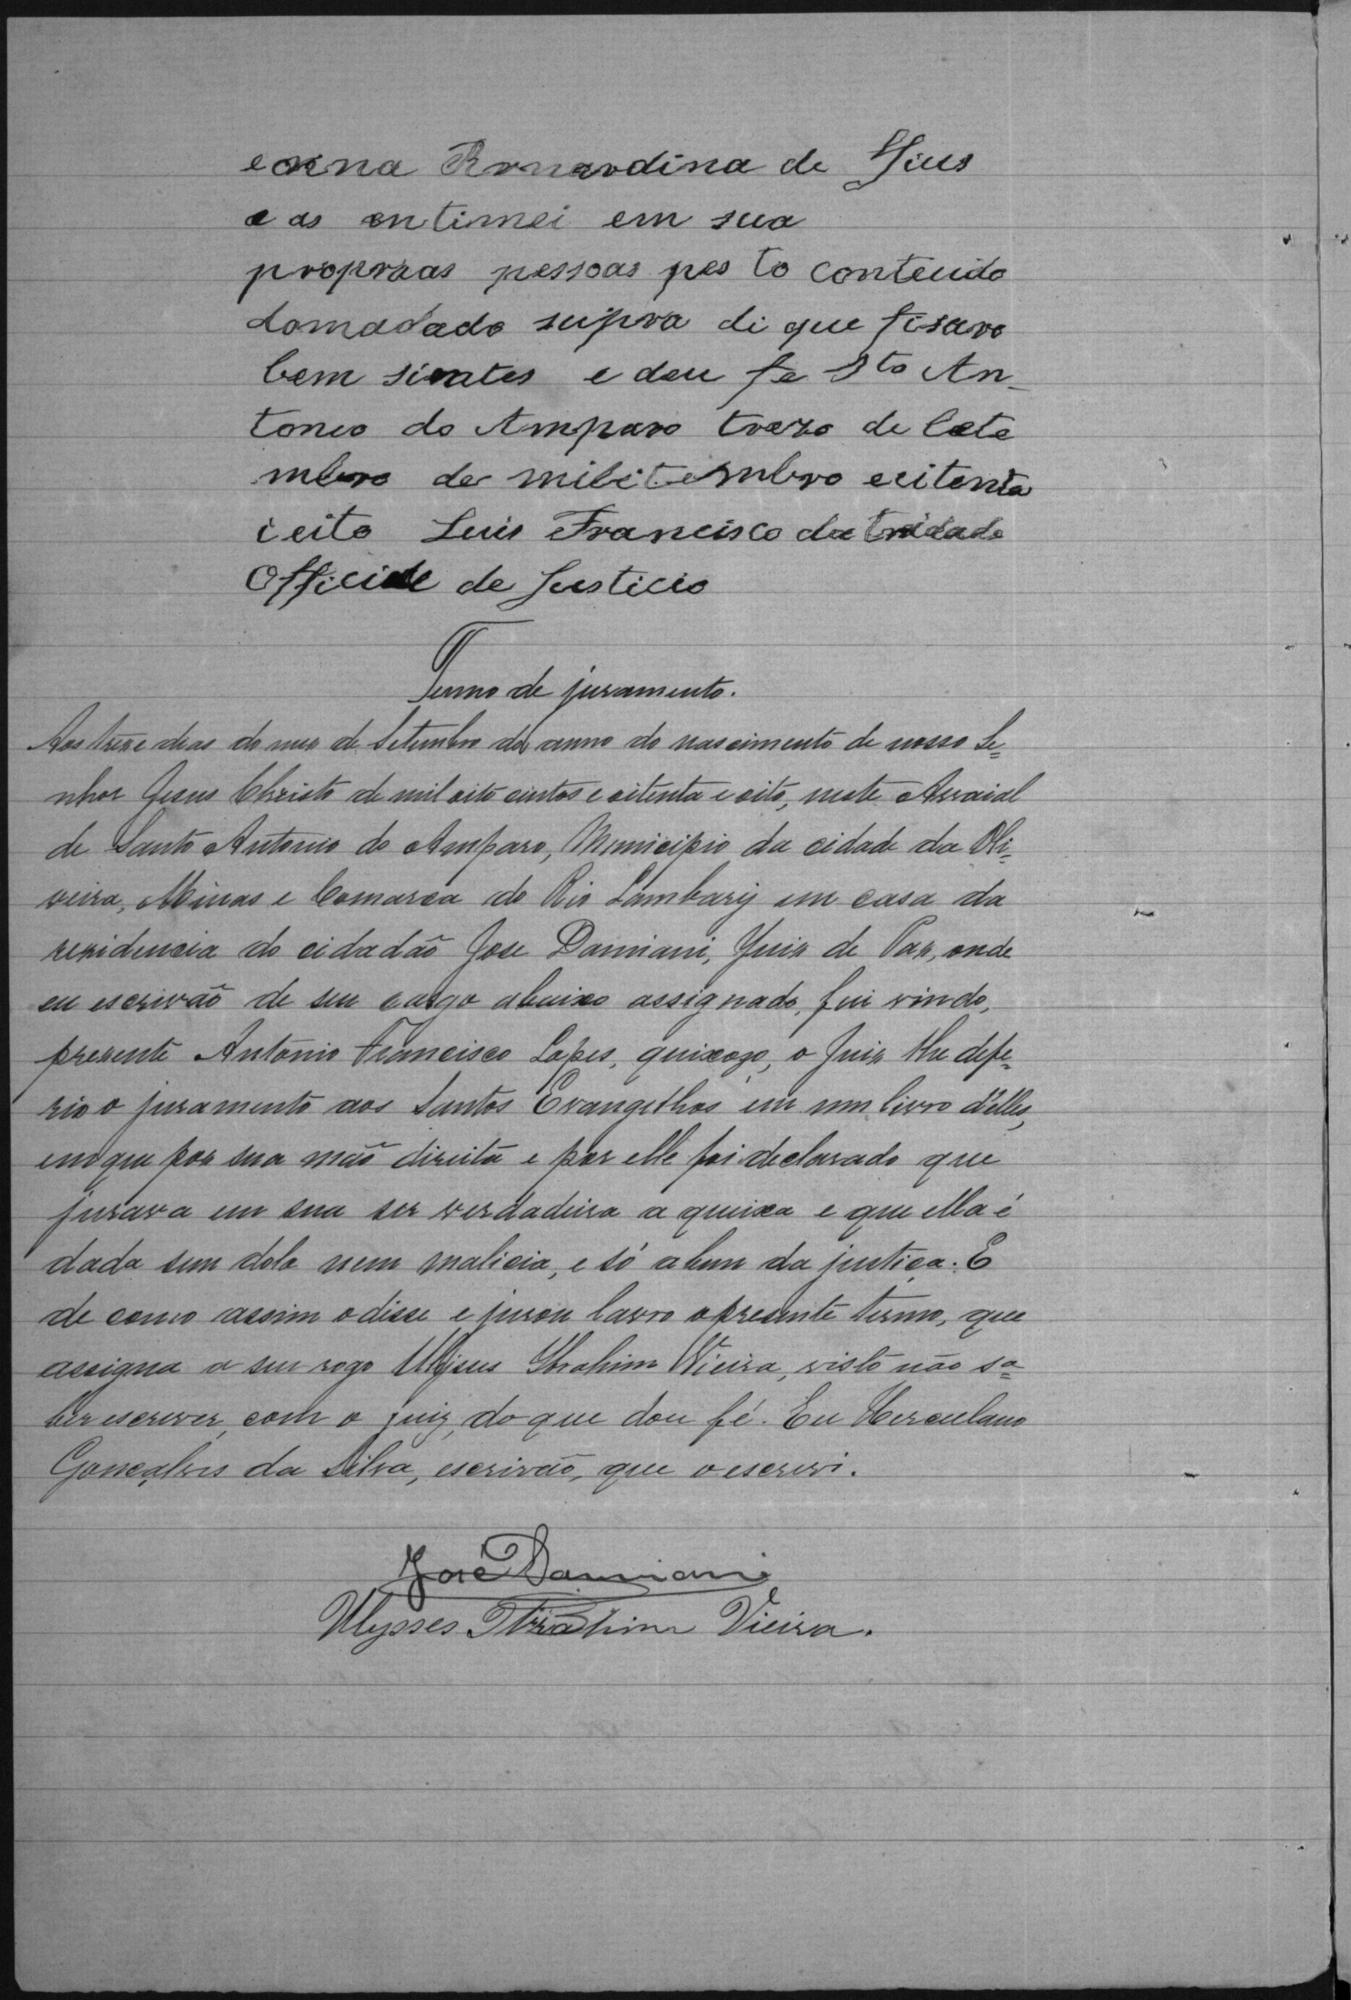 e anna Bernardina de Jius
e as entimei em sua
propraas pessoas pes to conteudo
domadado supra di que ficaro
bem sientes e dou fe Sto An-
toneo do Amparo trezo de Cete
mbro de mil e itembro eitenta
i eito Luis Francisco da Tridade
Officiale de Justicio
Termo de juramento.
Aos treze dias do mez de Setembro do anno do nascimento de nosso Se=
nhor Jesus Christo de mil oito centos e oitenta e oito, neste Arraial
de Santo Antonio do Amparo, Municipio da cidade da Oli-
veira, Minas e Comarca do Rio Lambary em casa da
rezidencia do cidadão Jose Damiani, Juiz de Paz, onde
eu escrivão de seu cargo abaixo assignado, fui vindo,
prezente Antonio Francisco Lopes, queixozo, o Juiz lhe defe-
rio o juramento aos Santos Evangelhos em um livro d'elles,
em que por sua mão direita e por elle foi declarado que
jurava em sua ser verdadeira a queixa e que ella é
dada sem dolo nem malicia, e só a bem da justiça. E
de como assim o disse e jurou lavro o prezente termo, que
assigna a seu rogo Ulysses Ibrahim Vieira, visto não sa=
ber escrever, com o juiz, do que dou fé. Eu Herculano
Gonçalves da Silva, escrivão, que o escrevi.
José Damiani
Ulysses Ibrahim Vieira.